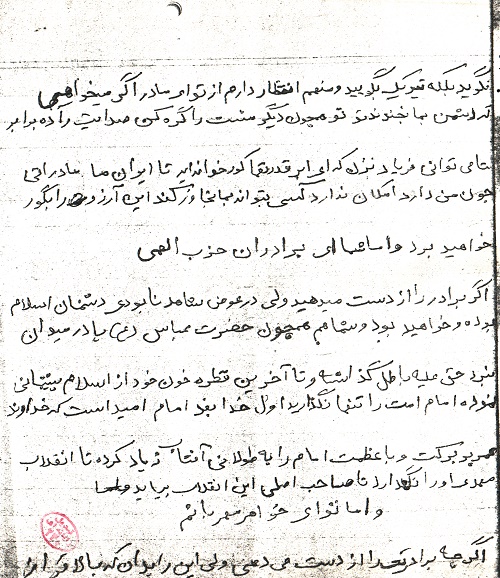 نگوئید بلکه تبریک بگویید و منهم انتظار دارم از تو ای مادر اگر میخواهیم
که دشمن بما نخندند تو همچون دیگر مشت را گره کن صدایت را ده برابر
تا می توانی فریاد بزن که ای ابر قدرتها کور خوانده اید تا ایران ما مادرانی
چون من دارد امکان ندارد کسی بتواند بما تجاوز کند این آرزو را بگور
خواهید برد و اما شما ای برادران حزب الهی
اگر برادر را از دست میدهید ولی در عوض شاهد نابودی دشمنان اسلام
بوده و خواهید بود و شما هم همچون حضرت عباس (ع) پا در میدان
نبرد حق علیه باطل گذاشته و تا آخرین قطره خون خود از اسلام پشتیبانی
نموده امام امت را تنها نگذارید اول خدا بعد امام امید است که خداوند
عمر پر برکت و با عظمت امام را به طولانی آفتاب زیاد کرده تا انقلاب
مهدی او را نگهدارد تا صاحب اصلی این انقلاب بیاید
و اما تو ای خواهر مهربانم
اگر چه برادرت را از دست می دهی ولی این را بدان که بالاتر از